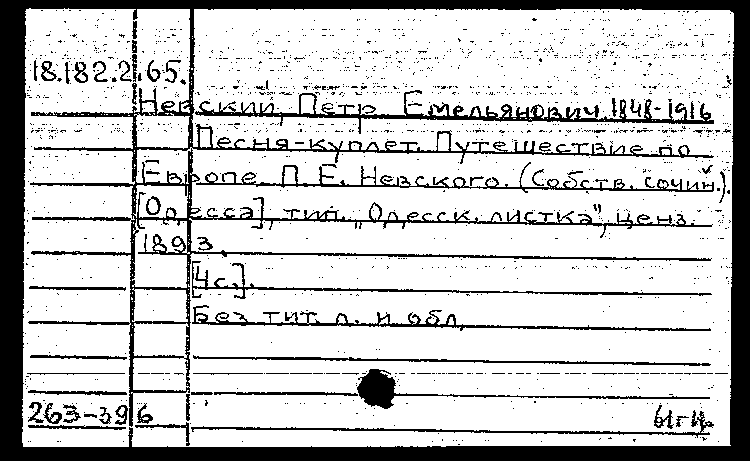 18.182.2.65.
Невский, Петр Емельянович, 1848-1916
Песня-куплет. Путешествие по
Европе П. Е. Невского. (Собств. сочин.).
[Одесса], тип. „Одесск. листка", ценз.
1893.
[4с.].
Без тит. л. и обл.
263-396